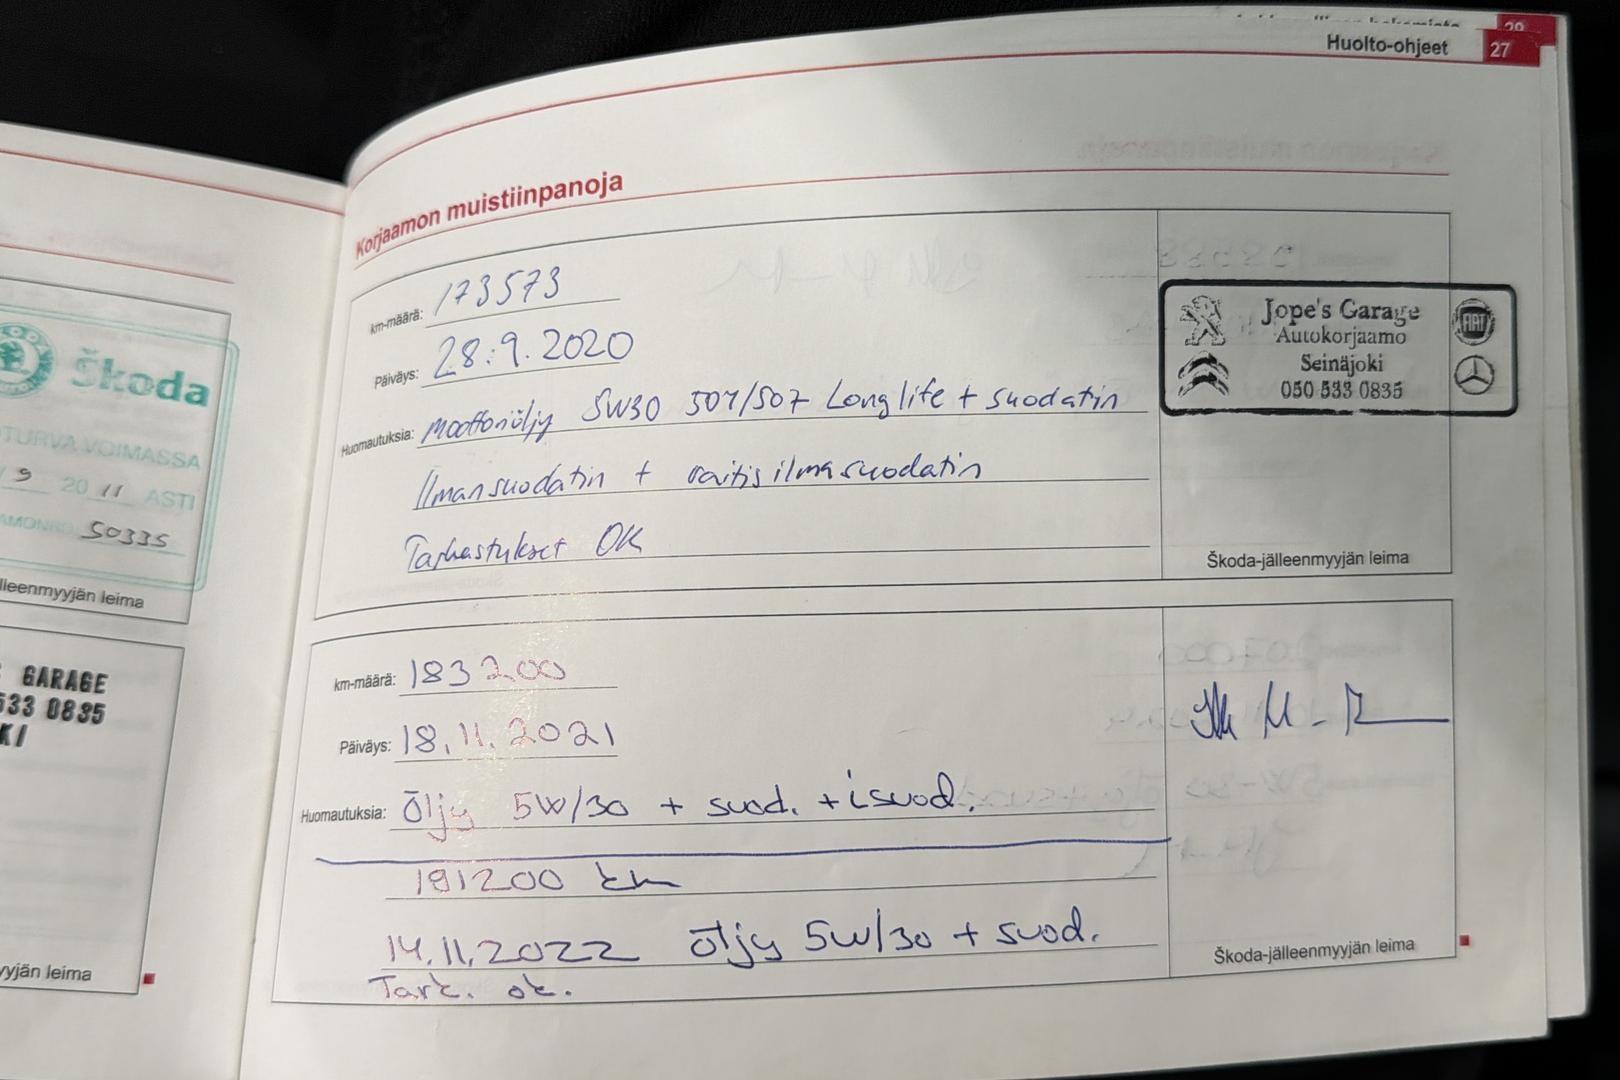 Huolto-ohjeet 27
29
Korjaamon muistiinpanoja
km-määrä: 173573
Päiväys: 28.9.2020
Huomautuksia: Moottoriöljy 5W30 504/507 Longlife + suodatin
Ilmansuodatin + raitisilmasuodatin
Tarkastukset OK
Jope's Garage
Autokorjaamo
Seinäjoki
050 533 0835
FIAT
Škoda-jälleenmyyjän leima
km-määrä: 183200
Päiväys: 18.11.2021
Huomautuksia: Öljy 5W/30 + suod. + isuod.
191200 km
14.11.2022 Öljy 5W/30 + suod.
Tark. ok.
Škoda-jälleenmyyjän leima
Škoda
TURVA VOIMASSA
9 20 11 ASTI
50335
lleenmyyjän leima
GARAGE
533 0835
KI
yyjän leima